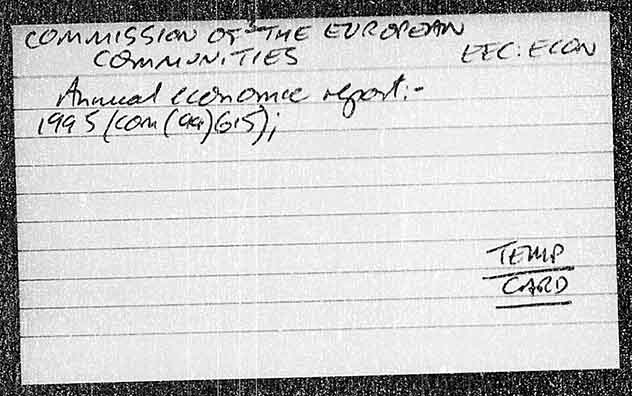 COMMISSION OF THE EUROPEAN
COMMUNITIES EEC: ECON
Annual economic report:-
1995 (COM(94)615);
TEMP
CARD